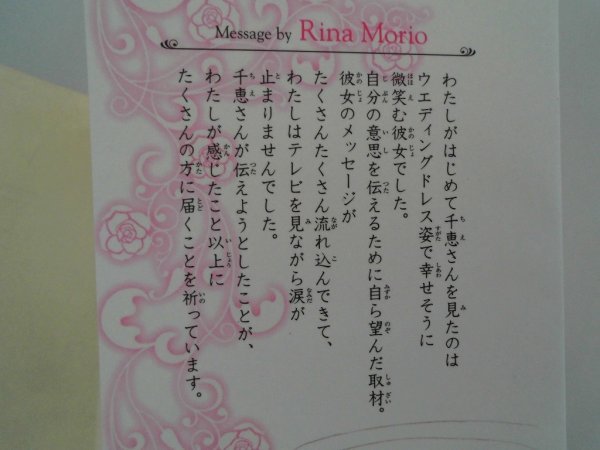 Message by Rina Morio
わたしがはじめて千恵さんを見たのは
ウエディングドレス姿で幸せそうに
微笑む彼女でした。
自分の意思を伝えるために自ら望んだ取材。
彼女のメッセージが
たくさんたくさん流れ込んできて、
わたしはテレビを見ながら涙が
止まりませんでした。
千恵さんが伝えようとしたことが、
わたしが感じたこと以上に
たくさんの方に届くことを祈っています。